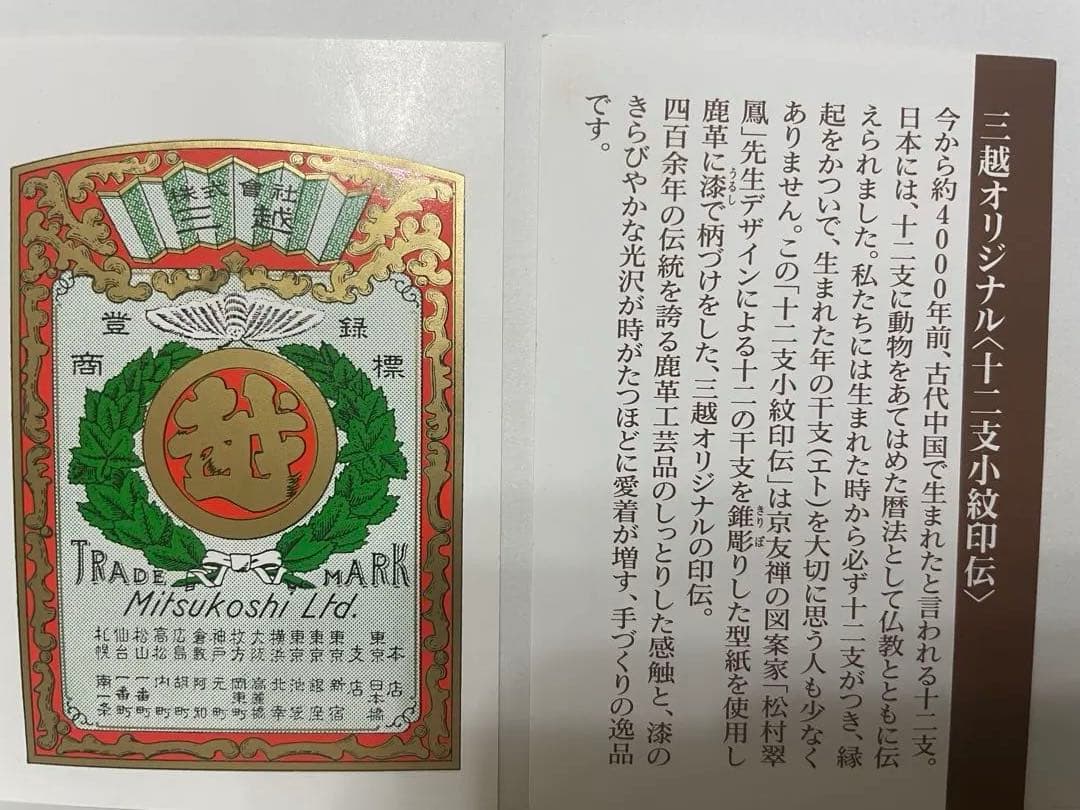 株式會社
三越
登録
商標
越
TRADE MARK
Mitsukoshi Ltd.
本店
東京 日本橋
支店
東京 新宿
東京 銀座
東京 池袋
横浜 北幸
大阪 高麗橋
枚方 岡東町
神戸 元町
倉敷 阿知
広島 胡町
高松 内町
松山 一番町
仙台 一番町
札幌 南一条
三越オリジナル〈十二支小紋印伝〉
今から約4000年前、古代中国で生まれたと言われる十二支。
日本には、十二支に動物をあてはめた暦法として仏教とともに伝
えられました。私たちには生まれた時から必ず十二支がつき、縁
起をかついで、生まれた年の干支(エト)を大切に思う人も少なく
ありません。この「十二支小紋印伝」は京友禅の図案家「松村翠
鳳」先生デザインによる十二の干支を錐彫りした型紙を使用し
きりぼ
鹿革に漆で柄づけをした、三越オリジナルの印伝。
うるし
四百余年の伝統を誇る鹿革工芸品のしっとりした感触と、漆の
きらびやかな光沢が時がたつほどに愛着が増す、手づくりの逸品
です。